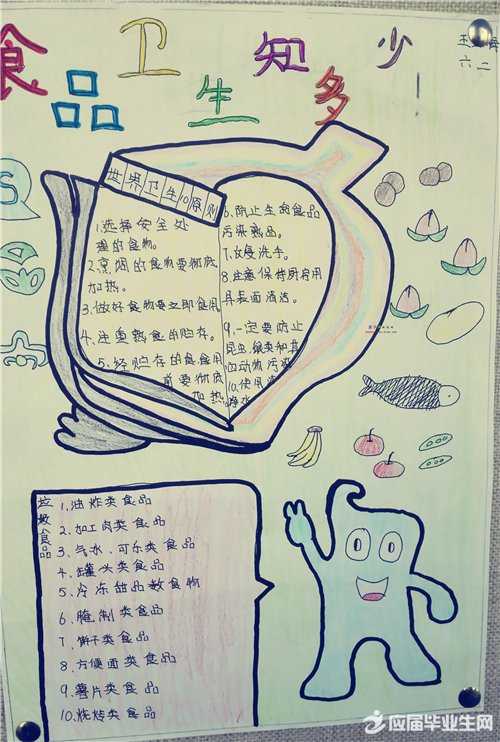 食品卫生知多少!
六二
世界卫生10原则
1.选择安全处
理的食物。
2.烹调的食物要彻底
加热。
3.做好食物要立即食用
4.注重熟食的贮存。
5.经贮存的食食用
前要彻底
加热。
6.防止生的食品
污染熟品。
7.反复洗手。
8.注意保持厨房用
具表面清洁。
9.一定要防止
昆虫、鼠类和其
四动物污染
10.使用
净水
垃圾食品
1.油炸类食品
2.加工肉类食品
3.气水、可乐类食品
4.罐头类食品
5.冷冻甜品类食物
6.腌制类食品
7.饼干类食品
8.方便面类食品
9.薯片类食品
10.烧烤类食品
应届毕业生网